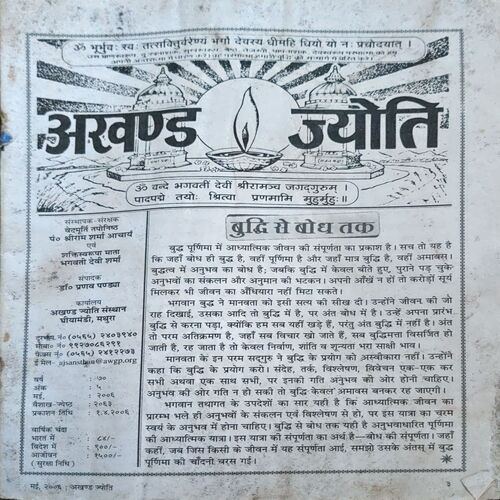 ॐ भूर्भुवः स्वः तत्सवितुर्वरेण्यं भर्गो देवस्य धीमहि धियो यो नः प्रचोदयात् ।
अखण्ड ज्योति
ॐ वन्दे भगवतीं देवीं श्रीरामञ्च जगद्गुरुम् ।
पादपद्मे तयोः श्रित्वा प्रणमामि मुहुर्मुहुः ॥
संस्थापक-संरक्षक
वेदमूर्ति तपोनिष्ठ
पं० श्रीराम शर्मा आचार्य
एवं
शक्तिस्वरूपा माता
भगवती देवी शर्मा
संपादक
डॉ० प्रणव पण्ड्या
कार्यालय
अखण्ड ज्योति संस्थान
घीयामंडी, मथुरा
दूरभाष नं० (०५६५) २४०३९४०
मोबा० नं० ९९२७०८६२९१
फैक्स नं० (०५६५) २४१२२७३
ई मेल- ajsansthan@awgp.org
वर्ष : ७०
अंक : ५
मई : २००६
वैशाख-ज्येष्ठ : २०६३
प्रकाशन तिथि : १.४.२००६
वार्षिक चंदा
भारत में : ८४/-
विदेश में : ९००/-
आजीवन : १५००/-
(सुरक्षा निधि)
बुद्धि से बोध तक
बुद्ध पूर्णिमा में आध्यात्मिक जीवन की संपूर्णता का प्रकाश है। सच तो यह है
कि जहाँ बोध ही बुद्ध है, वहीं पूर्णिमा है और जहाँ मात्र बुद्धि है, वहीं अमावस।
बुद्धत्व में अनुभव का बोध है; जबकि बुद्धि में केवल बीते हुए, पुराने पड़ चुके
अनुभवों का संकलन और अनुमान की भटकन। अपनी आँखें न हों तो करोड़ों सूर्य
मिलकर भी जीवन का अँधियारा नहीं मिटा सकते।
भगवान बुद्ध ने मानवता को इसी सत्य की सीख दी। उन्होंने जीवन की जो
राह दिखाई, उसका आदि तो बुद्धि में है, पर अंत बोध में है। उन्हें अपना प्रारंभ
बुद्धि से करना पड़ा, क्योंकि हम सब यहीं खड़े हैं, परंतु अंत बुद्धि में नहीं है। अंत
तो परम अतिक्रमण है, जहाँ सब विचार खो जाते हैं, सब बुद्धिमत्ता विसर्जित हो
जाती है, रह जाता है तो केवल निर्वाण, शांति व शून्यता भरा साक्षी भाव।
मानवता के इन परम सद्गुरु ने बुद्धि के प्रयोग को अस्वीकारा नहीं। उन्होंने
कहा कि बुद्धि के प्रयोग करो। संदेह, तर्क, विश्लेषण, विवेचन एक-एक कर
सभी अथवा एक साथ सभी, पर इनकी गति अनुभव की ओर होनी चाहिए।
अनुभव की ओर गति न हो सकी तो बुद्धि केवल अमावस बनकर रह जाएगी।
भगवान तथागत के उपदेशों का सार यही है कि आध्यात्मिक जीवन का
प्रारम्भ भले ही अनुभवों के संकलन एवं विश्लेषण से हो, पर इस यात्रा का चरम
स्वयं के अनुभव में होना चाहिए। बुद्धि से बोध तक यही है अनुभवाधारित पूर्णिमा
की आध्यात्मिक यात्रा। इस यात्रा की संपूर्णता का अर्थ है—बोध की संपूर्णता। जहाँ
कहीं, जब जिस किसी के जीवन में यह संपूर्णता आई, समझो उसके अंतस् में बुद्ध
पूर्णिमा की चाँदनी बरस गई।
मई, २००६ : अखण्ड ज्योति
३